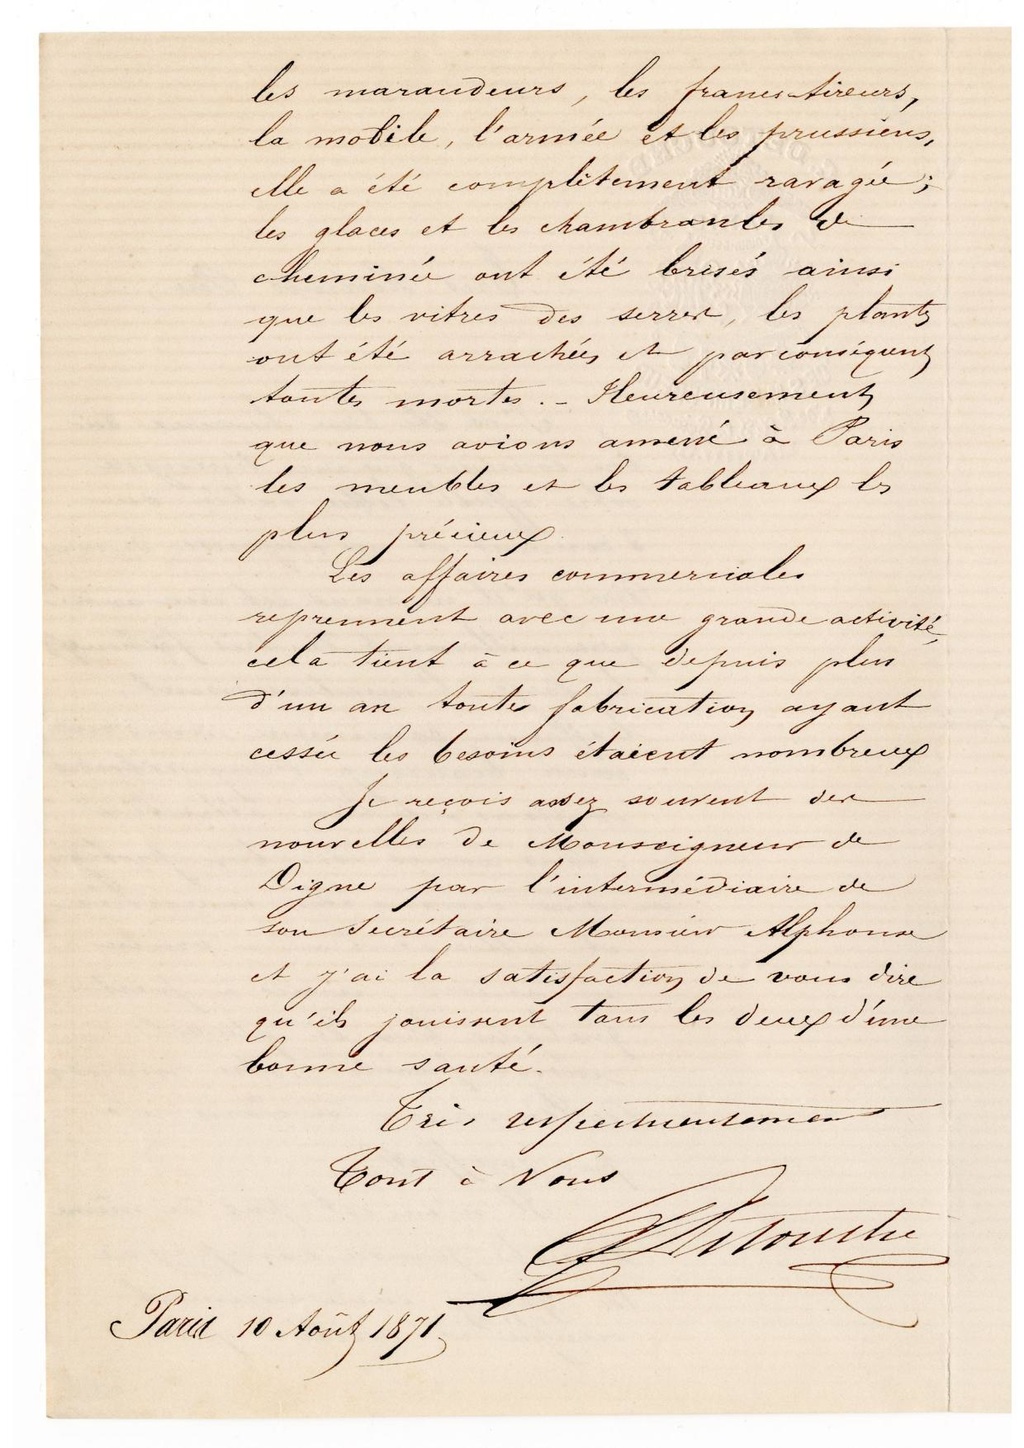 les maraudeurs, les francs-tireurs,
la mobile, l'armée et les prussiens,
elle a été complètement ravagée;
les glaces et les chambranles de
cheminée ont été brisés ainsi
que les vitres des serres, les plants
ont été arrachés et par conséquent
toutes mortes. - Heureusement
que nous avions amené à Paris
les meubles et les tableaux les
plus précieux.
Les affaires commerciales
reprennent avec une grande activité,
cela tient à ce que depuis plus
d'un an toute fabrication ayant
cessée les besoins étaient nombreux
Je reçois assez souvent des
nouvelles de Monseigneur de
Digne par l'intermédiaire de
son secrétaire Monsieur Alphonse
et j'ai la satisfaction de vous dire
qu'ils jouissent tous les deux d'une
bonne santé.
Très respectueusement
Tout à Vous
Paris 10 Août 1871